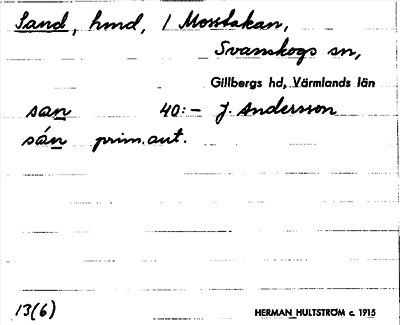 Sand, hmd, 1 Mosstakan,
Svanskogs sn,
Gillbergs hd, Värmlands län
san 40:- J. Andersson
sán prim.aut.
13(6) HERMAN HULTSTRÖM c. 1915